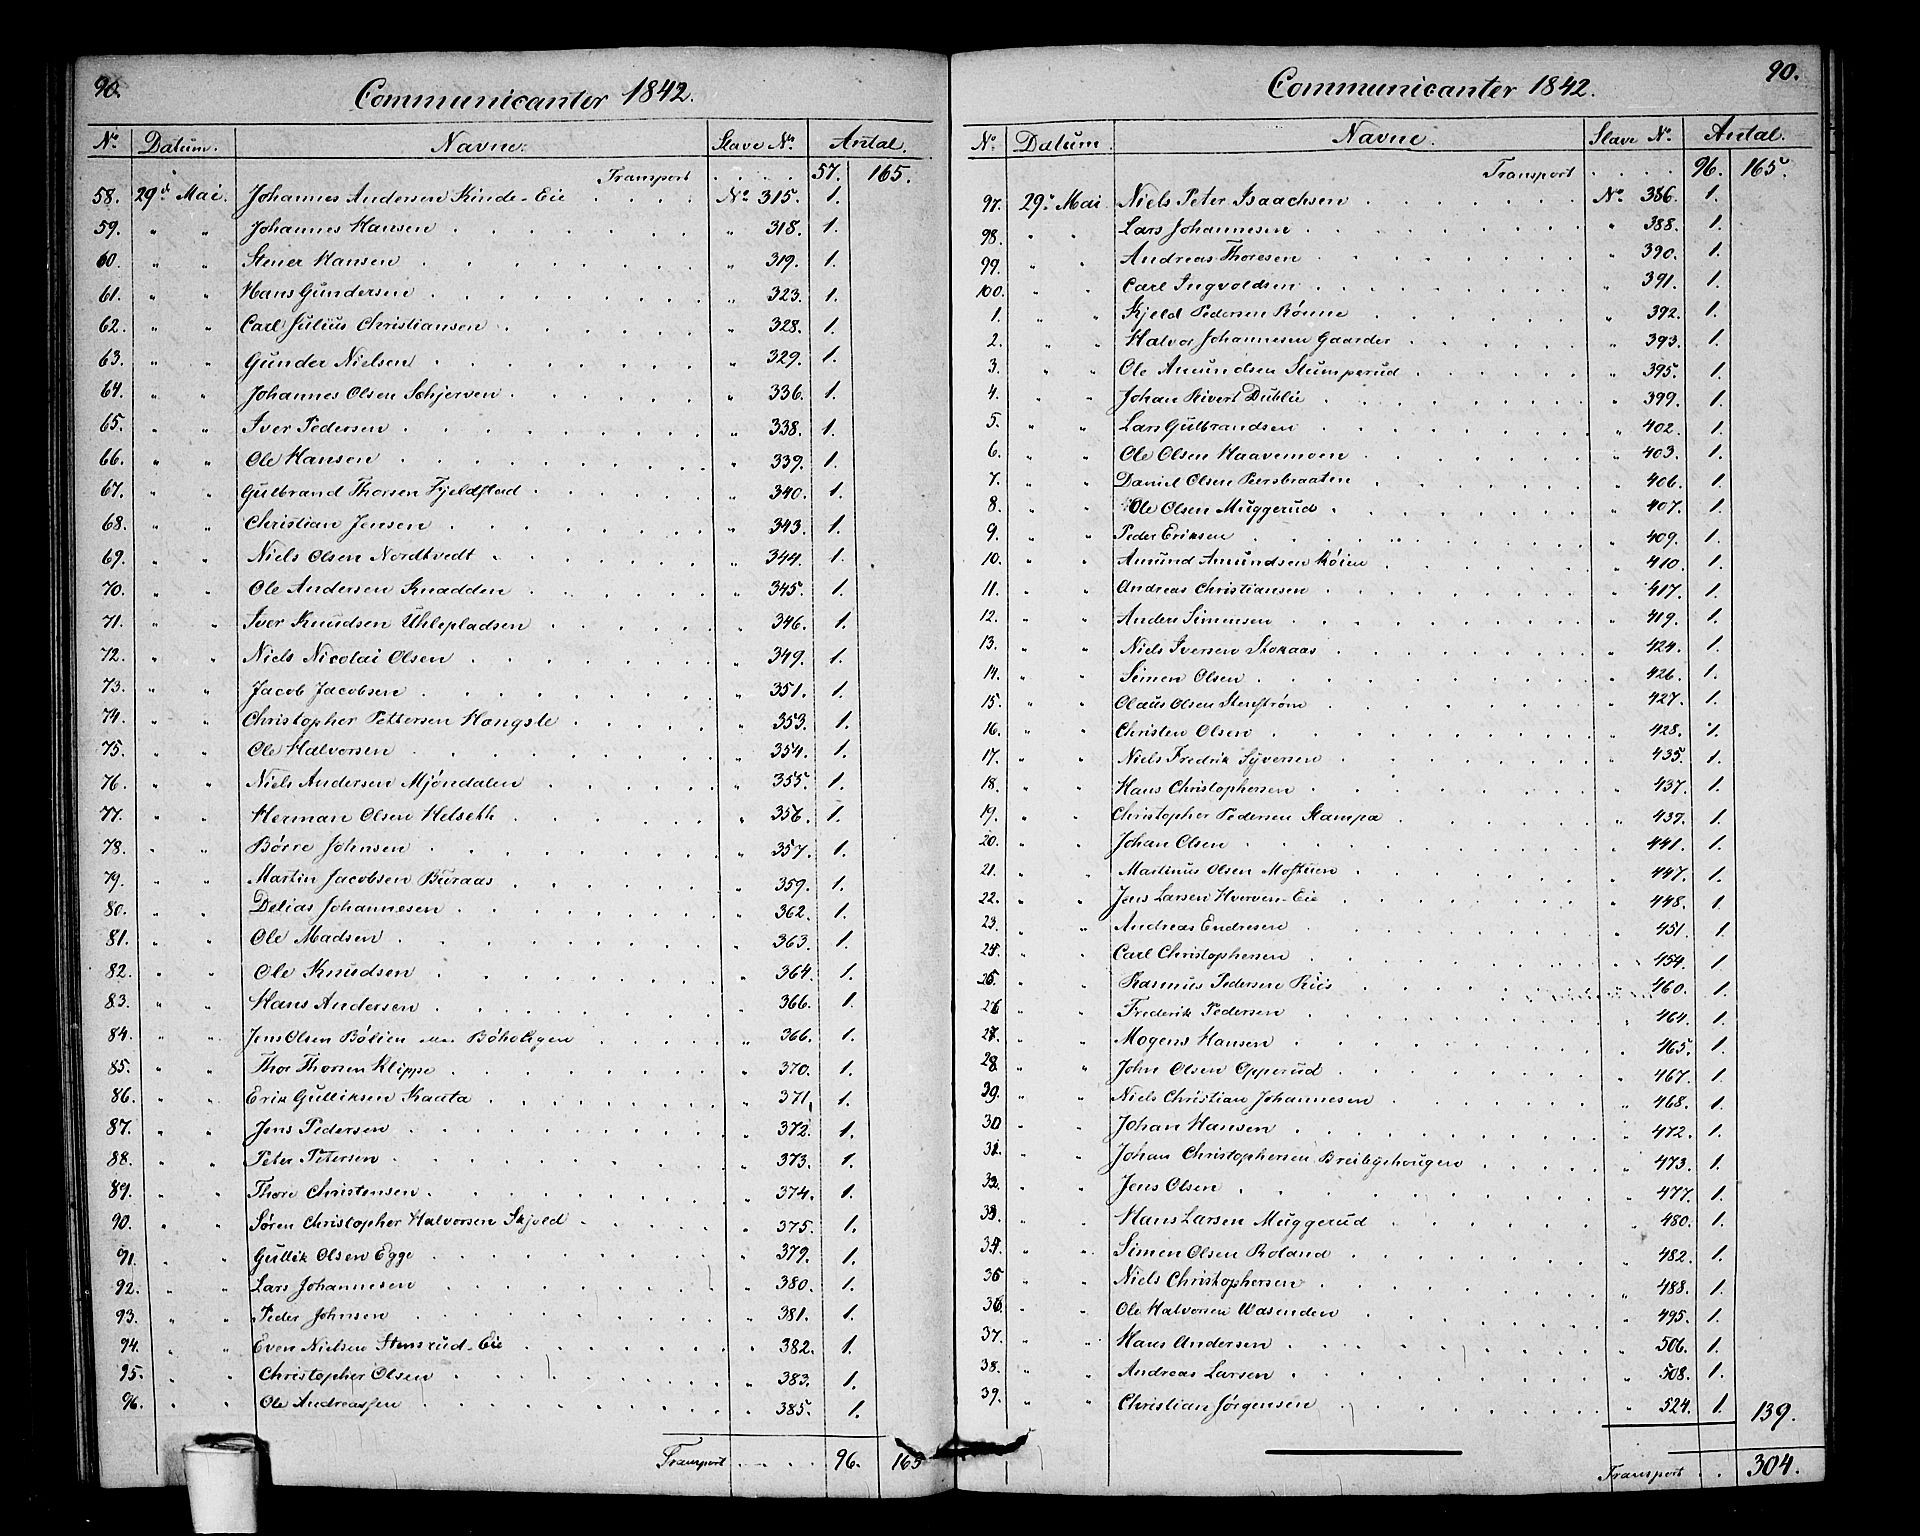 90.
Communicanter 1842.
No. Datum. Navne. Slave No. Antal.
Transport . . . . 57. 165.
58. 29de Mai. Johannes Andersen Kinde-Eie . . . . No. 315. 1.
59. " " Johannes Hansen . . . . " 318. 1.
60. " " Stener Hansen . . . . " 319. 1.
61. " " Hans Gundersen . . . . " 323. 1.
62. " " Carl Julius Christiansen . . . . " 328. 1.
63. " " Gunder Nielsen . . . . " 329. 1.
64. " " Johannes Olsen Schjerven . . . . " 336. 1.
65. " " Iver Pedersen . . . . " 338. 1.
66. " " Ole Hansen . . . . " 339. 1.
67. " " Gulbrand Thorsen Fjeldstad . . . . " 340. 1.
68. " " Christian Jensen . . . . " 343. 1.
69. " " Niels Olsen Nordtvedt . . . . " 344. 1.
70. " " Ole Andersen Knadden . . . . " 345. 1.
71. " " Iver Knudsen Uhlepladsen . . . . " 346. 1.
72. " " Niels Nicolai Olsen . . . . " 349. 1.
73. " " Jacob Jacobsen . . . . " 351. 1.
74. " " Christopher Pettersen Hongsle . . . . " 353. 1.
75. " " Ole Halvorsen . . . . " 354. 1.
76. " " Niels Andersen Mjøndalen . . . . " 355. 1.
77. " " Herman Olsen Helseth . . . . " 356. 1.
78. " " Børre Johnsen . . . . " 357. 1.
79. " " Martin Jacobsen Buraas . . . . " 359. 1.
80. " " Delias Johannesen . . . . " 362. 1.
81. " " Ole Madsen . . . . " 363. 1.
82. " " Ole Knudsen . . . . " 364. 1.
83. " " Hans Andersen . . . . " 366. 1.
84. " " Jens Olsen Bølien . . . . " 366. 1.
85. " " Thor Thorsen Klippe . . . . " 370. 1.
86. " " Erik Gulliksen Kaata . . . . " 371. 1.
87. " " Jens Pedersen . . . . " 372. 1.
88. " " Peter Petersen . . . . " 373. 1.
89. " " Thore Christensen . . . . " 374. 1.
90. " " Søren Christopher Halvorsen Skjold . . . . " 375. 1.
91. " " Gullik Olsen Egge . . . . " 379. 1.
92. " " Lars Johannesen . . . . " 380. 1.
93. " " Peder Johnsen . . . . " 381. 1.
94. " " Even Nielsen Stensrud-Eie . . . . " 382. 1.
95. " " Christopher Olsen . . . . " 383. 1.
96. " " Ole Andreassen . . . . " 385. 1.
Transport . . . . 96. 165
90.
Communicanter 1842.
No. Datum. Navne. Slave No. Antal.
Transport . . . . 96. 165.
97. 29. Mai. Niels Peter Isaachsen . . . . No. 386. 1.
98. " " Lars Johannesen . . . . " 388. 1.
99. " " Andreas Thoresen . . . . " 390. 1.
100. " " Carl Ingvoldsen . . . . " 391. 1.
1. " " Kjeld Pedersen Rønne . . . . " 392. 1.
2. " " Halvor Johannesen Gaarder . . . . " 393. 1.
3. " " Ole Amundsen Slumperud . . . . " 395. 1.
4. " " Johan Sivert Duhlie . . . . " 399. 1.
5. " " Lars Gulbrandsen . . . . " 402. 1.
6. " " Ole Olsen Haavemoen . . . . " 403. 1.
7. " " Daniel Olsen Persbraaten . . . . " 406. 1.
8. " " Ole Olsen Muggerud . . . . " 407. 1.
9. " " Peder Eriksen . . . . " 409. 1.
10. " " Amund Amundsen Røien . . . . " 410. 1.
11. " " Andreas Christiansen . . . . " 417. 1.
12. " " Anders Simensen . . . . " 419. 1.
13. " " Niels Iversen Stokaas . . . . " 424. 1.
14. " " Simen Olsen . . . . " 426. 1.
15. " " Claus Olsen Stenstrøm . . . . " 427. 1.
16. " " Christen Olsen . . . . " 428. 1.
17. " " Niels Fredrik Syversen . . . . " 435. 1.
18. " " Hans Christophersen . . . . " 437. 1.
19. " " Christopher Pedersen Stampa . . . . " 439. 1.
20. " " Johan Olsen . . . . " 441. 1.
21. " " Martinus Olsen Mostuen . . . . " 447. 1.
22. " " Jens Larsen Hverven-Eie . . . . " 448. 1.
23. " " Andreas Endresen . . . . " 451. 1.
25. " " Carl Christophersen . . . . " 454. 1.
26. " " Rasmus Pedersen Riis . . . . " 460. 1.
26. " " Frederik Pedersen . . . . " 464. 1.
27. " " Mogens Hansen . . . . " 465. 1.
28. " " John Olsen Opperud . . . . " 467. 1.
29. " " Niels Christian Johannesen . . . . " 468. 1.
30 " " Johan Hansen . . . . " 472. 1.
31. " " Johan Christophersen Breibyshougen . . . . " 473. 1.
32. " " Jens Olsen . . . . " 477. 1.
33. " " Hans Larsen Muggerud . . . . " 480. 1.
34. " " Simen Olsen Roland . . . . " 482. 1.
35 " " Niels Christophersen . . . . " 488. 1.
36. " " Ole Halvorsen Wasenden . . . . " 495. 1.
37. " " Hans Andersen . . . . " 506. 1.
38. " " Andreas Larsen . . . . " 508. 1.
39. " " Christian Jørgensen . . . . " 524. 1. 139.
Transport . . 304.